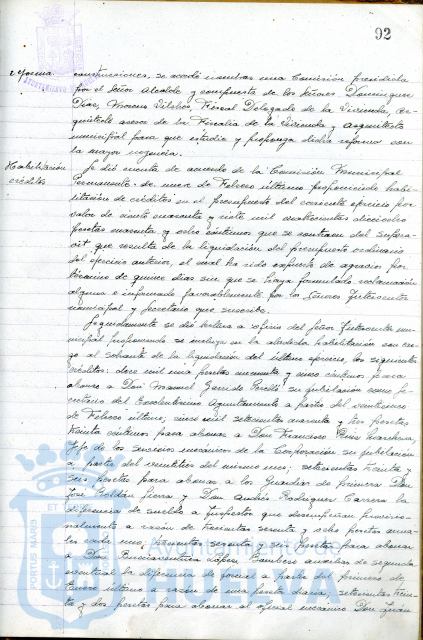 92
reforma
construcciones, se acordó nombrar una Comisión presidida
por el Señor Alcalde y compuesta de los Señores Dominguez
Diaz, Moreno Vilches, Fiscal Delegado de la Vivienda, Ar-
quitecto asesor de la Fiscalia de la Vivienda y Arquitecto
municipal para que estudie y proponga dicha reforma con
la mayor urgencia.
Habilitación
créditos
Se dió cuenta de acuerdo de la Comisión Municipal
Permanente de nueve de Febrero último proponiendo habi-
litación de créditos en el presupuesto del corriente ejercicio por
valor de ciento cuarenta y siete mil ochocientas dieciocho
pesetas cuarenta y ocho céntimos que se nutren del superá-
vit que resulta de la liquidación del presupuesto ordinario
del ejercicio anterior, el cual ha sido expuesto de agravios por
término de quince dias sin que se haya formulado reclamación
alguna e informado favorablemente por los Señores Interventor
municipal y Secretario que suscribe.
Seguidamente se dió lectura a oficio del Señor Interventor mu-
nicipal proponiendo se incluya en la aludida habilitación con car-
go al sobrante de la liquidación del último ejercicio, los siguientes
créditos: doce mil una pesetas cincuenta y cinco céntimos para
abonar a Don Manuel Garrido Perelló su jubilación como Se-
cretario del Excelentísimo Ayuntamiento a partir del veintiocho
de Febrero último; cinco mil setecientas cuarenta y tres pesetas
treinta céntimos para abonar a Don Francisco
Jefe de los servicios mecánicos de la Corporación su jubilación
a partir del veintitres del mismo mes; setecientas treinta y
seis pesetas para abonar a los Guardias de primera Don
José Roldán y Don Andrés Rodriguez Carrera la
diferencia de sueldo a Inspector que desempeñan provisio-
nalmente a razón de trescientas sesenta y ocho pesetas anua-
les cada uno; trescientas sesenta y pesetas para abonar
a Don Buenaventura López auxiliar de segunda
eventual la diferencia de jornal a partir del primero de
Enero último a razón de una peseta diaria; setecientas trein-
ta y dos pesetas para abonar al oficial mecánico Don Juán
PORTUS MARIS ET
Ayuntamiento de
HUELVA